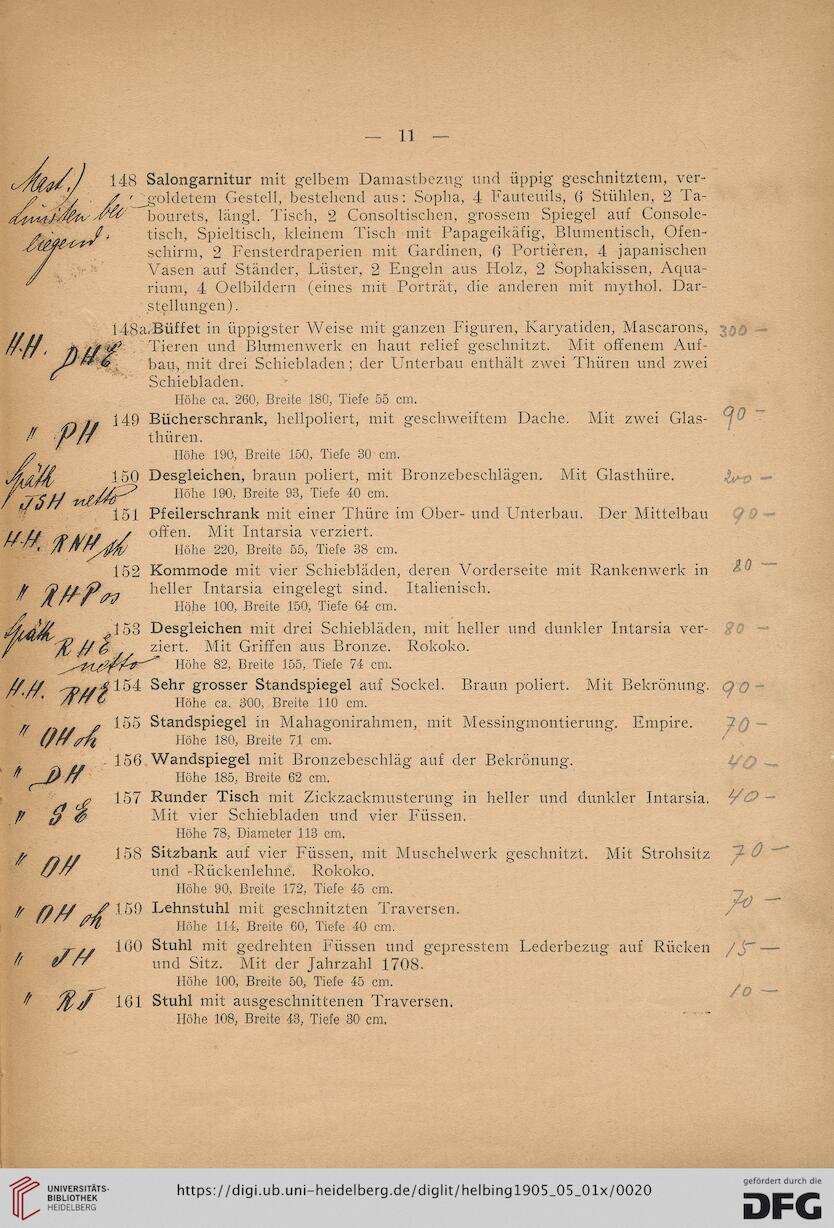 — 11 —
Mast.)
bei
liegend.
148 Salongarnitur mit gelbem Damastbezug und üppig geschnitztem, ver-
goldetem Gestell, bestehend aus: Sopha, 4 Fauteuils, 6 Stühlen, 2 Ta-
bourets, längl. Tisch, 2 Consoltischen, grossem Spiegel auf Console-
tisch, Spieltisch, kleinem Tisch mit Papageikäfig, Blumentisch, Ofen-
schirm, 2 Fensterdraperien mit Gardinen, 6 Portièren, 4 japanischen
Vasen auf Ständer, Lüster, 2 Engeln aus Holz, 2 Sophakissen, Aqua-
rium, 4 Oelbildern (eines mit Porträt, die anderen mit mythol. Dar-
stellungen).
148a Büffet in üppigster Weise mit ganzen Figuren, Karyatiden, Mascarons, 300 —
H.H. DHE Tieren und Blumenwerk en haut relief geschnitzt. Mit offenem Auf-
bau, mit drei Schiebladen; der Unterbau enthält zwei Thüren und zwei
Schiebladen.
Höhe ca. 260, Breite 180, Tiefe 55 cm.
149 Bücherschrank, hellpoliert, mit geschweiftem Dache. Mit zwei Glas- 90 —
" PH thüren.
Höhe 190, Breite 150, Tiefe 30 cm.
Späth 150 Desgleichen, braun poliert, mit Bronzebeschlägen. Mit Glasthüre. 200 —
JSH netto Höhe 190, Breite 93, Tiefe 40 cm.
151 Pfeilerschrank mit einer Thüre im Ober- und Unterbau. Der Mittelbau 90 —
H.H. RNH sh offen. Mit Intarsia verziert.
Höhe 220, Breite 55, Tiefe 38 cm.
152 Kommode mit vier Schiebläden, deren Vorderseite mit Rankenwerk in 80 —
" RHP os heller Intarsia eingelegt sind. Italienisch.
Höhe 100, Breite 150, Tiefe 64 cm.
Späth 153 Desgleichen mit drei Schiebläden, mit heller und dunkler Intarsia ver- 80 —
RHE ziert. Mit Griffen aus Bronze. Rokoko.
netto Höhe 82, Breite 155, Tiefe 74 cm.
H.H. RHE 154 Sehr grosser Standspiegel auf Sockel. Braun poliert. Mit Bekrönung. 90 —
Höhe ca. 300, Breite 110 cm.
" OH oh 155 Standspiegel in Mahagonirahmen, mit Messingmontierung. Empire. 70 —
Höhe 180, Breite 71 cm.
" DH 156 Wandspiegel mit Bronzebeschläg auf der Bekrönung. 40 —
Höhe 185, Breite 62 cm.
157 Runder Tisch mit Zickzackmusterung in heller und dunkler Intarsia. 40 —
" SE Mit vier Schiebladen und vier Füssen.
Höhe 78, Diameter 113 cm.
" OH 158 Sitzbank auf vier Füssen, mit Muschelwerk geschnitzt. Mit Strohsitz 70 —
und -Rückenlehne. Rokoko.
Höhe 90, Breite 172, Tiefe 45 cm.
" OH oh 159 Lehnstuhl mit geschnitzten Traversen. 70 —
Höhe 114, Breite 60, Tiefe 40 cm.
" JH 160 Stuhl mit gedrehten Füssen und gepresstem Lederbezug auf Rücken 15 —
und Sitz. Mit der Jahrzahl 1708.
Höhe 100, Breite 50, Tiefe 45 cm.
" RJ 161 Stuhl mit ausgeschnittenen Traversen. 10 —
Höhe 108, Breite 43, Tiefe 30 cm.
UNIVERSITÄTS-
BIBLIOTHEK
HEIDELBERG
https://digi.ub.uni-heidelberg.de/diglit/helbing1905_05_01x/0020
gefördert durch die
DFG